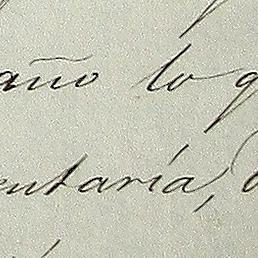 año lo q
entaría,